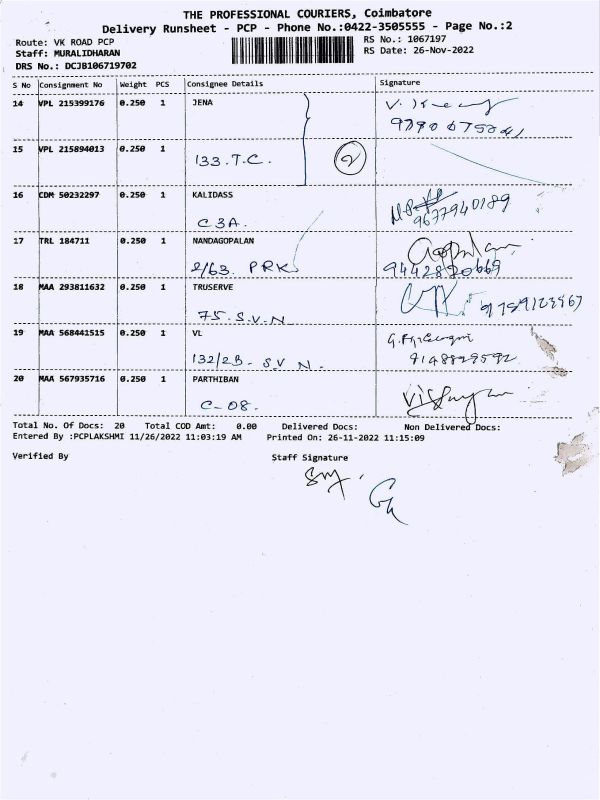 THE PROFESSIONAL COURIERS, Coimbatore
Delivery Runsheet - PCP - Phone No.:0422-3505555 - Page No.:2
Route: VK ROAD PCP
RS No.: 1067197
Staff: MURALIDHARAN
RS Date: 26-Nov-2022
DRS No.: DCJB106719702
S No Consignment No Weight PCS Consignee Details Signature
14 VPL 215399176 0.250 1 JENA
15 VPL 215894013 0.250 1
133.T.C. 2
16 CDM 50232297 0.250 1 KALIDASS
C3A. 9677940189
17 TRL 184711 0.250 1 NANDAGOPALAN
2/63. PRK 9442820669
18 MAA 293811632 0.250 1 TRUSERVE
75.S.V.N
19 MAA 568441515 0.250 1 VL
132/2B. S.V N. 9148829592
20 MAA 567935716 0.250 1 PARTHIBAN
C-08.
Total No. Of Docs: 20 Total COD Amt: 0.00 Delivered Docs: Non Delivered Docs:
Entered By :PCPLAKSHMI 11/26/2022 11:03:19 AM Printed On: 26-11-2022 11:15:09
Verified By Staff Signature